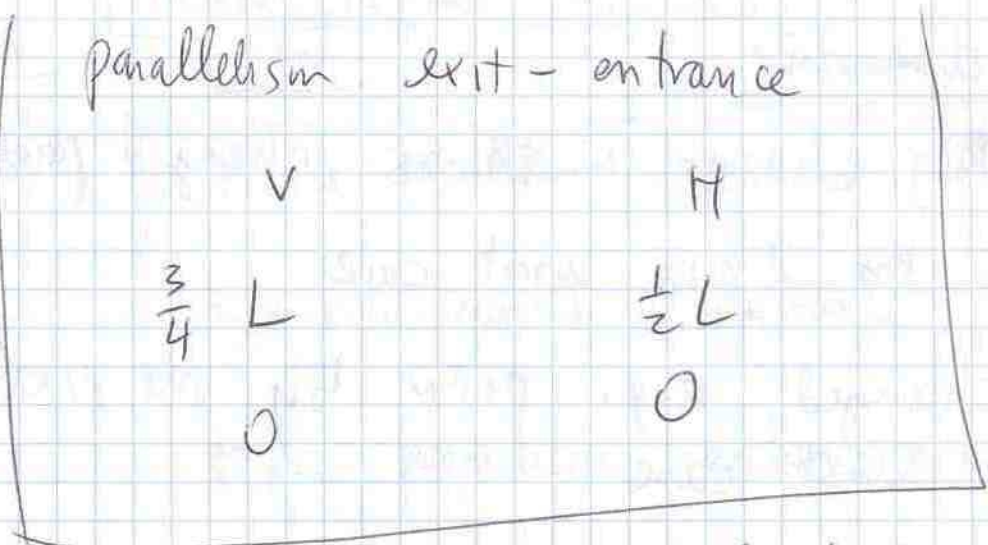 parallelism exit - entrance
V H
3/4 L 1/2 L
O O